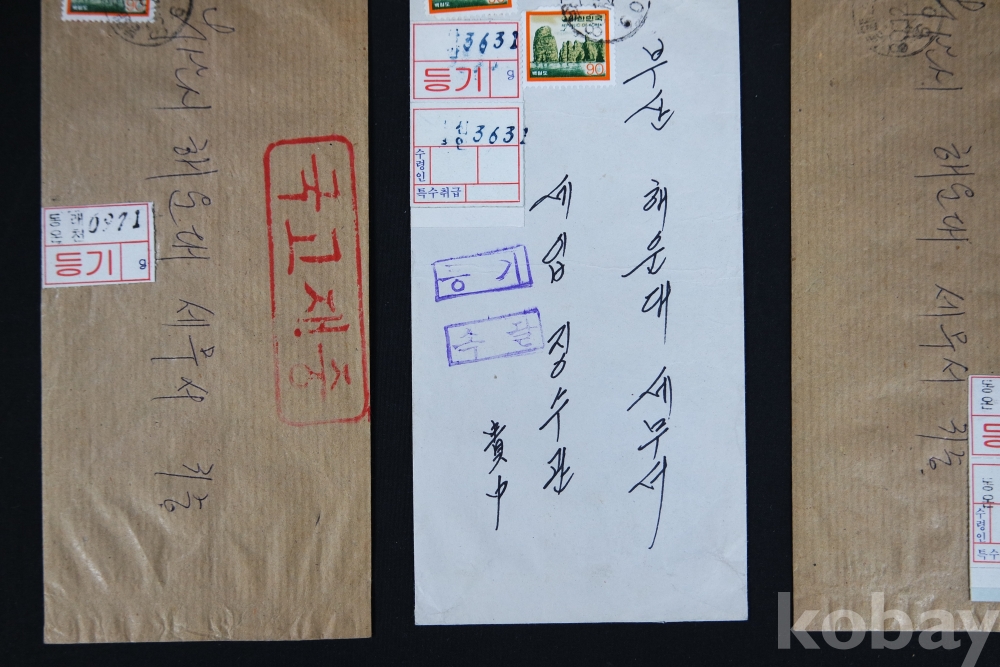 부산시 해운대 세무서 귀중
동래
온천
0971
등기
국고재중
3632
등기
3632
수령인
특수취급
대한민국
백령도
90
부산 해운대 세무서
세입 징수관
貴中
등기
속달
부산시 해운대 세무서 귀중
등
수령인
특수
kobay